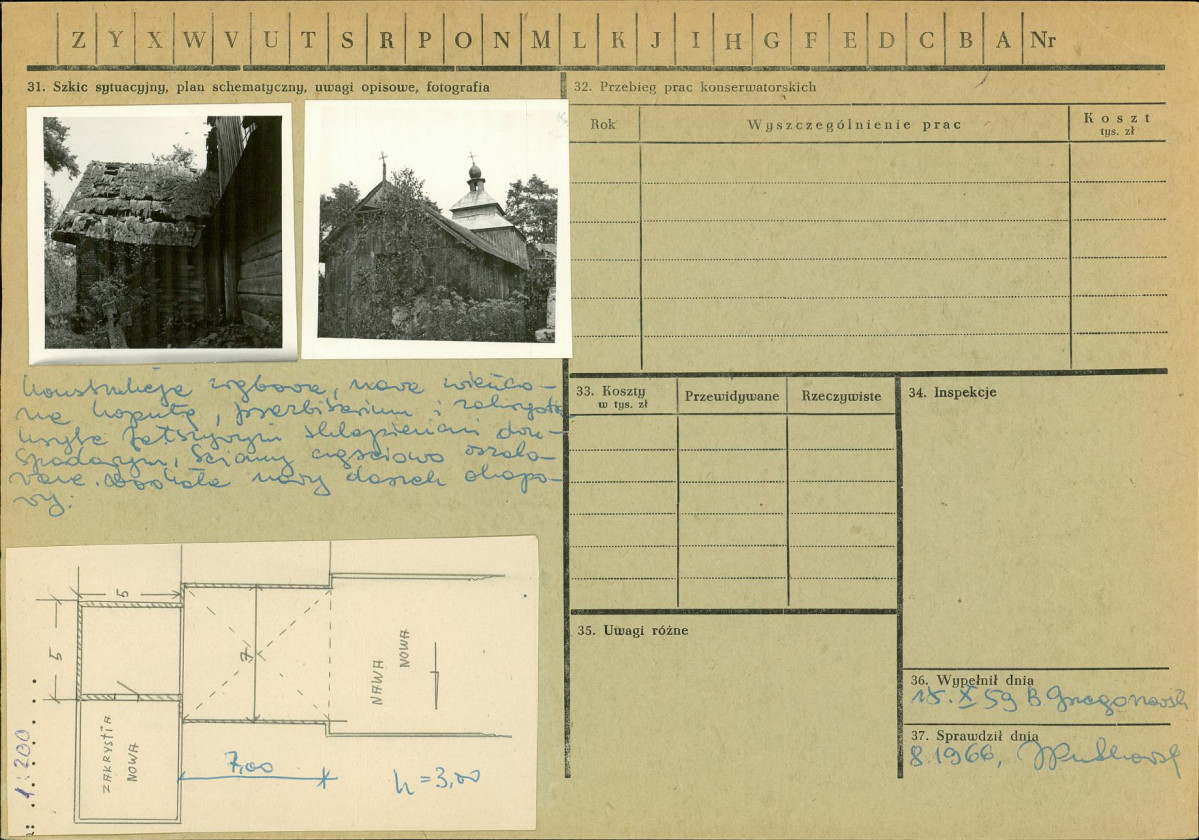 Z Y X W V U T S R P O N M L K J I H G F E D C B A Nr
31. Szkic sytuacyjny, plan schematyczny, uwagi opisowe, fotografia
Konstrukcja zrębowa, nawa wieńczo-
na kopułą, prezbiterium i zakrystia
kryte fałszywym sklepieniem dwu-
spadowym, ściany częściowo oszalo-
wane. Dookoła nawy daszek okapo-
wy.
5
5
7
ZAKRYSTIA
NOWA
NAWA
NOWA
7,00
h = 3,00
1:200
32. Przebieg prac konserwatorskich
Rok
Wyszczególnienie prac
Koszt
tys. zł
33. Koszty
w tys. zł
Przewidywane
Rzeczywiste
34. Inspekcje
35. Uwagi różne
36. Wypełnił dnia
15. X 59 B.
37. Sprawdził dnia
8.1966,